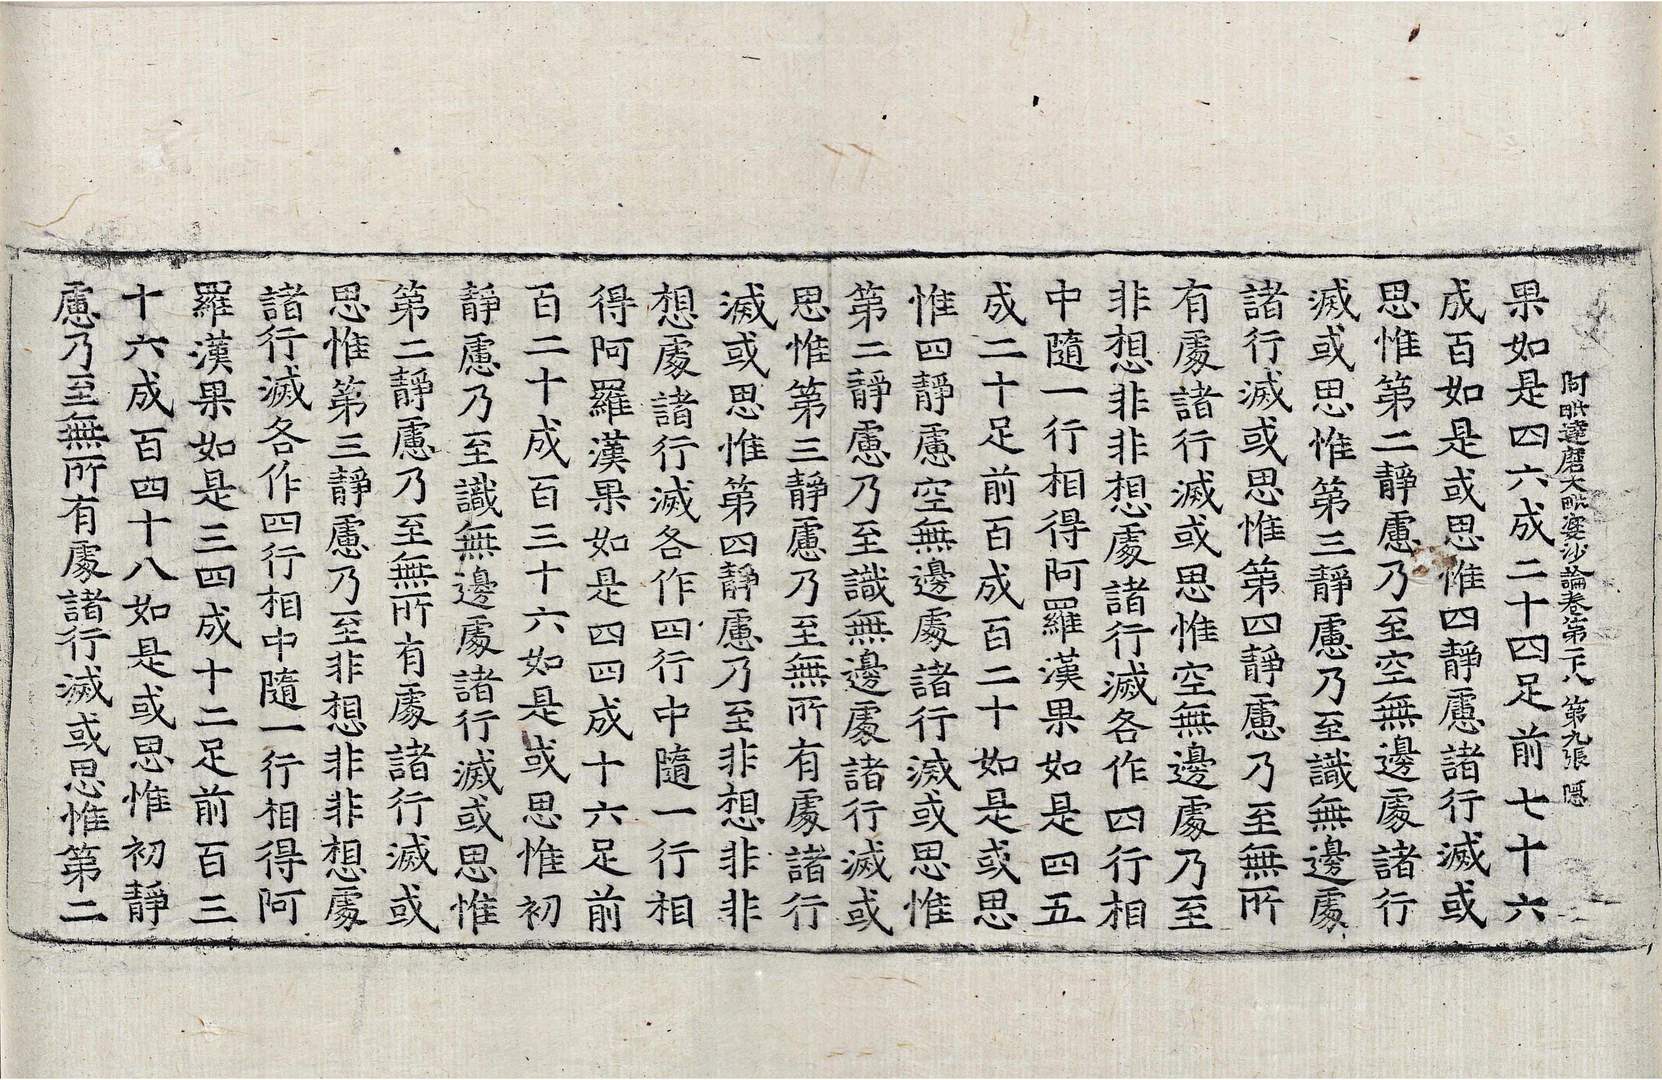 阿毗達磨大毗婆沙論卷第二十八　第九張　隱
果如是四六成二十四足前七十六
成百如是或思惟四靜慮諸行滅或
思惟第二靜慮乃至空無邊處諸行
滅或思惟第三靜慮乃至識無邊處
諸行滅或思惟第四靜慮乃至無所
有處諸行滅或思惟空無邊處乃至
非想非非想處諸行滅各作四行相
中隨一行相得阿羅漢果如是四五
成二十足前百成百二十如是或思
惟四靜慮空無邊處諸行滅或思惟
第二靜慮乃至識無邊處諸行滅或
思惟第三靜慮乃至無所有處諸行
滅或思惟第四靜慮乃至非想非非
想處諸行滅各作四行中隨一行相
得阿羅漢果如是四四成十六足前
百二十成百三十六如是或思惟初
靜慮乃至識無邊處諸行滅或思惟
第二靜慮乃至無所有處諸行滅或
思惟第三靜慮乃至非想非非想處
諸行滅各作四行相中隨一行相得阿
羅漢果如是三四成十二足前百三
十六成百四十八如是或思惟初靜
慮乃至無所有處諸行滅或思惟第二